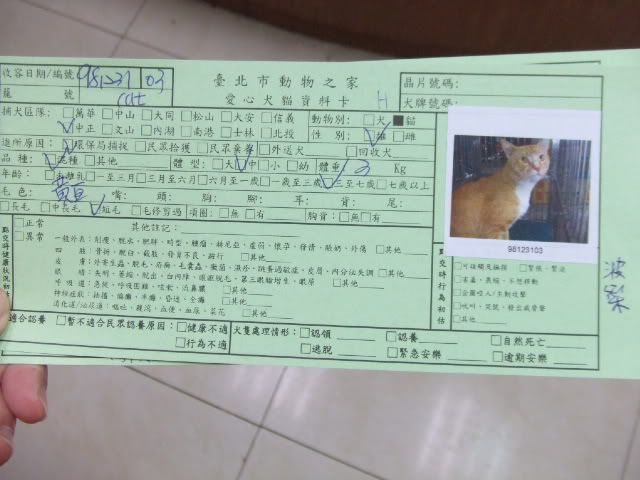 收容日期/編號 981231 03 臺北市動物之家 晶片號碼:
籠號 愛心犬貓資料卡 犬牌號碼:
捕犬區隊: □萬華 □中山 □大同 □松山 □大安 □信義 動物別: □犬 ■貓
□中正 □文山 □內湖 □南港 □士林 □北投 性別: □雄 □雌
進所原因: □環保局捕捉 □民眾拾獲 □民眾棄養 □外送犬 □回收犬
品種: □混種 □其他 體型: □大 □中 □小 □幼 體重: Kg
年齡: □未離乳 □一至三月 □三月至六月 □六月至一歲 □一歲至三歲 □三至七歲 □七歲以上
毛色: 黃白 嘴: 頭: 腳: 耳: 背: 尾:
□長毛 □中長毛 □短毛 □毛修剪過 項圈: □無 □有 胸背: □無 □有
98123103
點交時健康狀況初估
□正常
□異常
其他註記:
一般外表: 削瘦、脫水、肥胖、畸型、腫瘤、林羔亞、虛弱、懷孕、發情、賬奶、外傷 □其他
四肢: 骨折、脫臼、截肢、發育不良、跛行 □其他
皮膚: 外寄生蟲、脫毛、疥癬、毛囊蟲、黴菌、濕疹、跳蚤過敏症、皮屑、內分泌失調 □其他
眼睛: 失明、萎縮、脫出、白內障、眼瞼脫毛、第三眼瞼增生、眼屎 □其他
呼吸道: 急促、呼吸困難、咳嗽、流鼻膿 □其他
神經症狀: 抽搐、偏癱、半癱、昏迷、全癱 □其他
消化道/泌尿道: 嘔吐、腹瀉、血便、血尿、菜花 □其他
點交時行為初估
□可接觸及撫摸 □緊張、緊迫
□害羞、畏縮、不想移動
□企圖咬人/主動攻擊
□吠叫、哭號、發出威脅聲
□其他
波梨
□適合認養 □暫不適合民眾認養原因: □健康不適 犬隻處理情形: □認領 □認養 □自然死亡
□行為不適 □逃脫 □緊急安樂 □逾期安樂